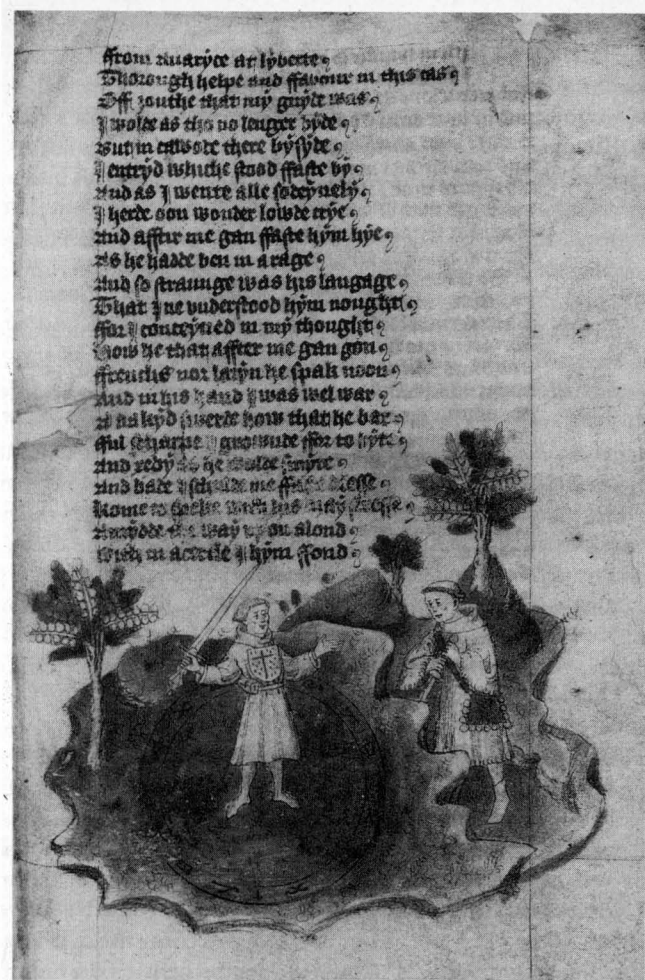 ffrom Auaryce at lyberte
Thorough helpe and ffavour in this cas
Off youthe that my guyde was
I wolde as tho no lenger byde
But in a wode there bysyde
I entryd whiche stood ffaste by
And as I wente alle sodeynely
I herde oon wonder lowde crye
And afftir me gan ffaste hym hye
As he hadde ben in a rage
And so straunge was his langage
That I ne vnderstood hym nought
ffor I conceyued in my thought
How he that affter me gan gon
ffrenchs nor latyn he spak noon
And in his hand I was wel war
A nakyd swerde how that he bar
fful scharpe I grounde ffor to byte
And redy as he wolde smyte
And bade I schulde me ffaste dresse
Kome to speke with his
Amydde the way vpon a lond
With in a cercle I hym ffond